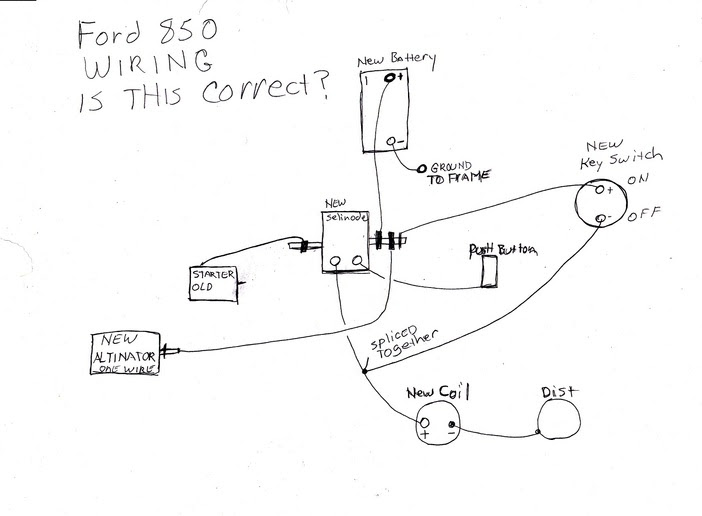 Ford 850
WIRING
IS THIS Correct?
New Battery
+
-
GROUND
TO FRAME
NEW
Key Switch
ON
+
OFF
-
NEW
Selinode
Push Button
STARTER
OLD
NEW
ALTINATOR
ONE WIRE
SPLICED
TOgether
New Coil
+ -
Dist